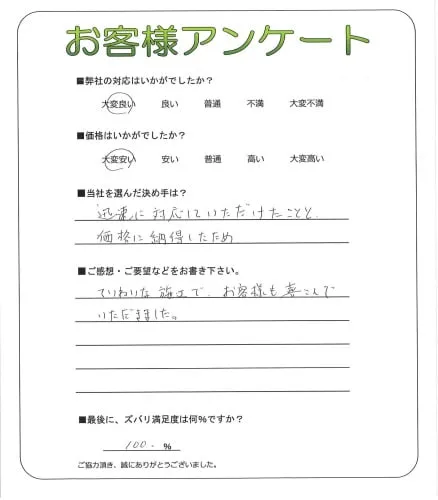 お客様アンケート
■弊社の対応はいかがでしたか？
大変良い 良い 普通 不満 大変不満
■価格はいかがでしたか？
大変安い 安い 普通 高い 大変高い
■当社を選んだ決め手は？
迅速に対応していただけたことと、
価格に納得したため
■ご感想・ご要望などをお書き下さい。
ていねいな施工で、お客様も喜こんで
いただきました。
■最後に、ズバリ満足度は何％ですか？
100. ％
ご協力頂き、誠にありがとうございました。